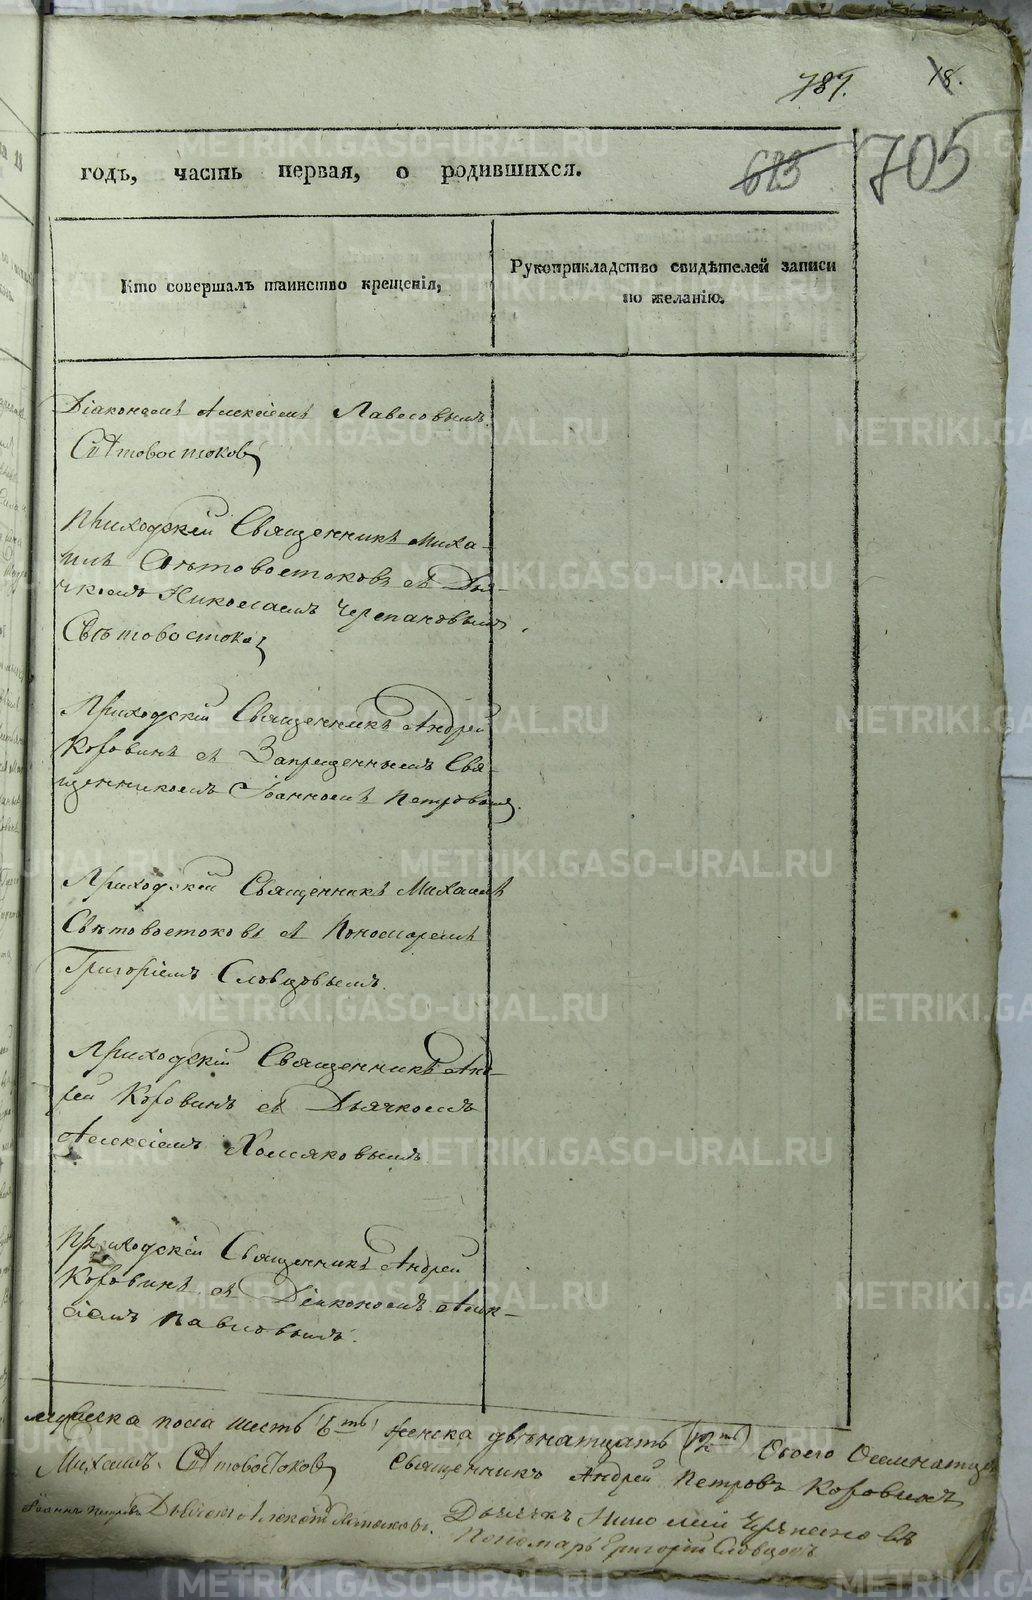 787. 18.
623 705
годъ, часть первая, о родившихся.
Кто совершалъ таинство крещенія,
Рукоприкладство свидѣтелей записи
по желанію.
Діакономъ Алексіемъ Павловымъ
Свѣтовостоковъ
Приходскій Священникъ Миха-
илъ Свѣтовостоковъ съ Дья-
чкомъ Николаемъ Черепановымъ,
Свѣтовостоков
Приходскій Священникъ Андрей
Коровинъ съ Запрещеннымъ Свя-
щенникомъ Іоанномъ Петровым.
Приходскій Священникъ Михаилъ
Свѣтовостоковъ съ Пономаремъ
Григоріемъ Словцовымъ.
Приходскій Священникъ Анд-
рей Коровинъ съ Дьячкомъ
Алексіемъ Хомяковымъ
Приходскій Священникъ Андрей
Коровинъ съ Діакономъ Алек-
сіемъ Павловымъ.
мужеска пола шесть (6-ть) женска двѣнатцать (12-ть) Обоего Осмнатцать
Михаилъ Свѣтовостоковъ Священникъ Андрей Петровъ Коровинъ
Іоаннъ Петровъ Дьячокъ Алексій Хомяковъ. Дьячокъ Николай Черепановъ
Пономарь Григорій Словцовъ
METRIKI.GASO-URAL.RU